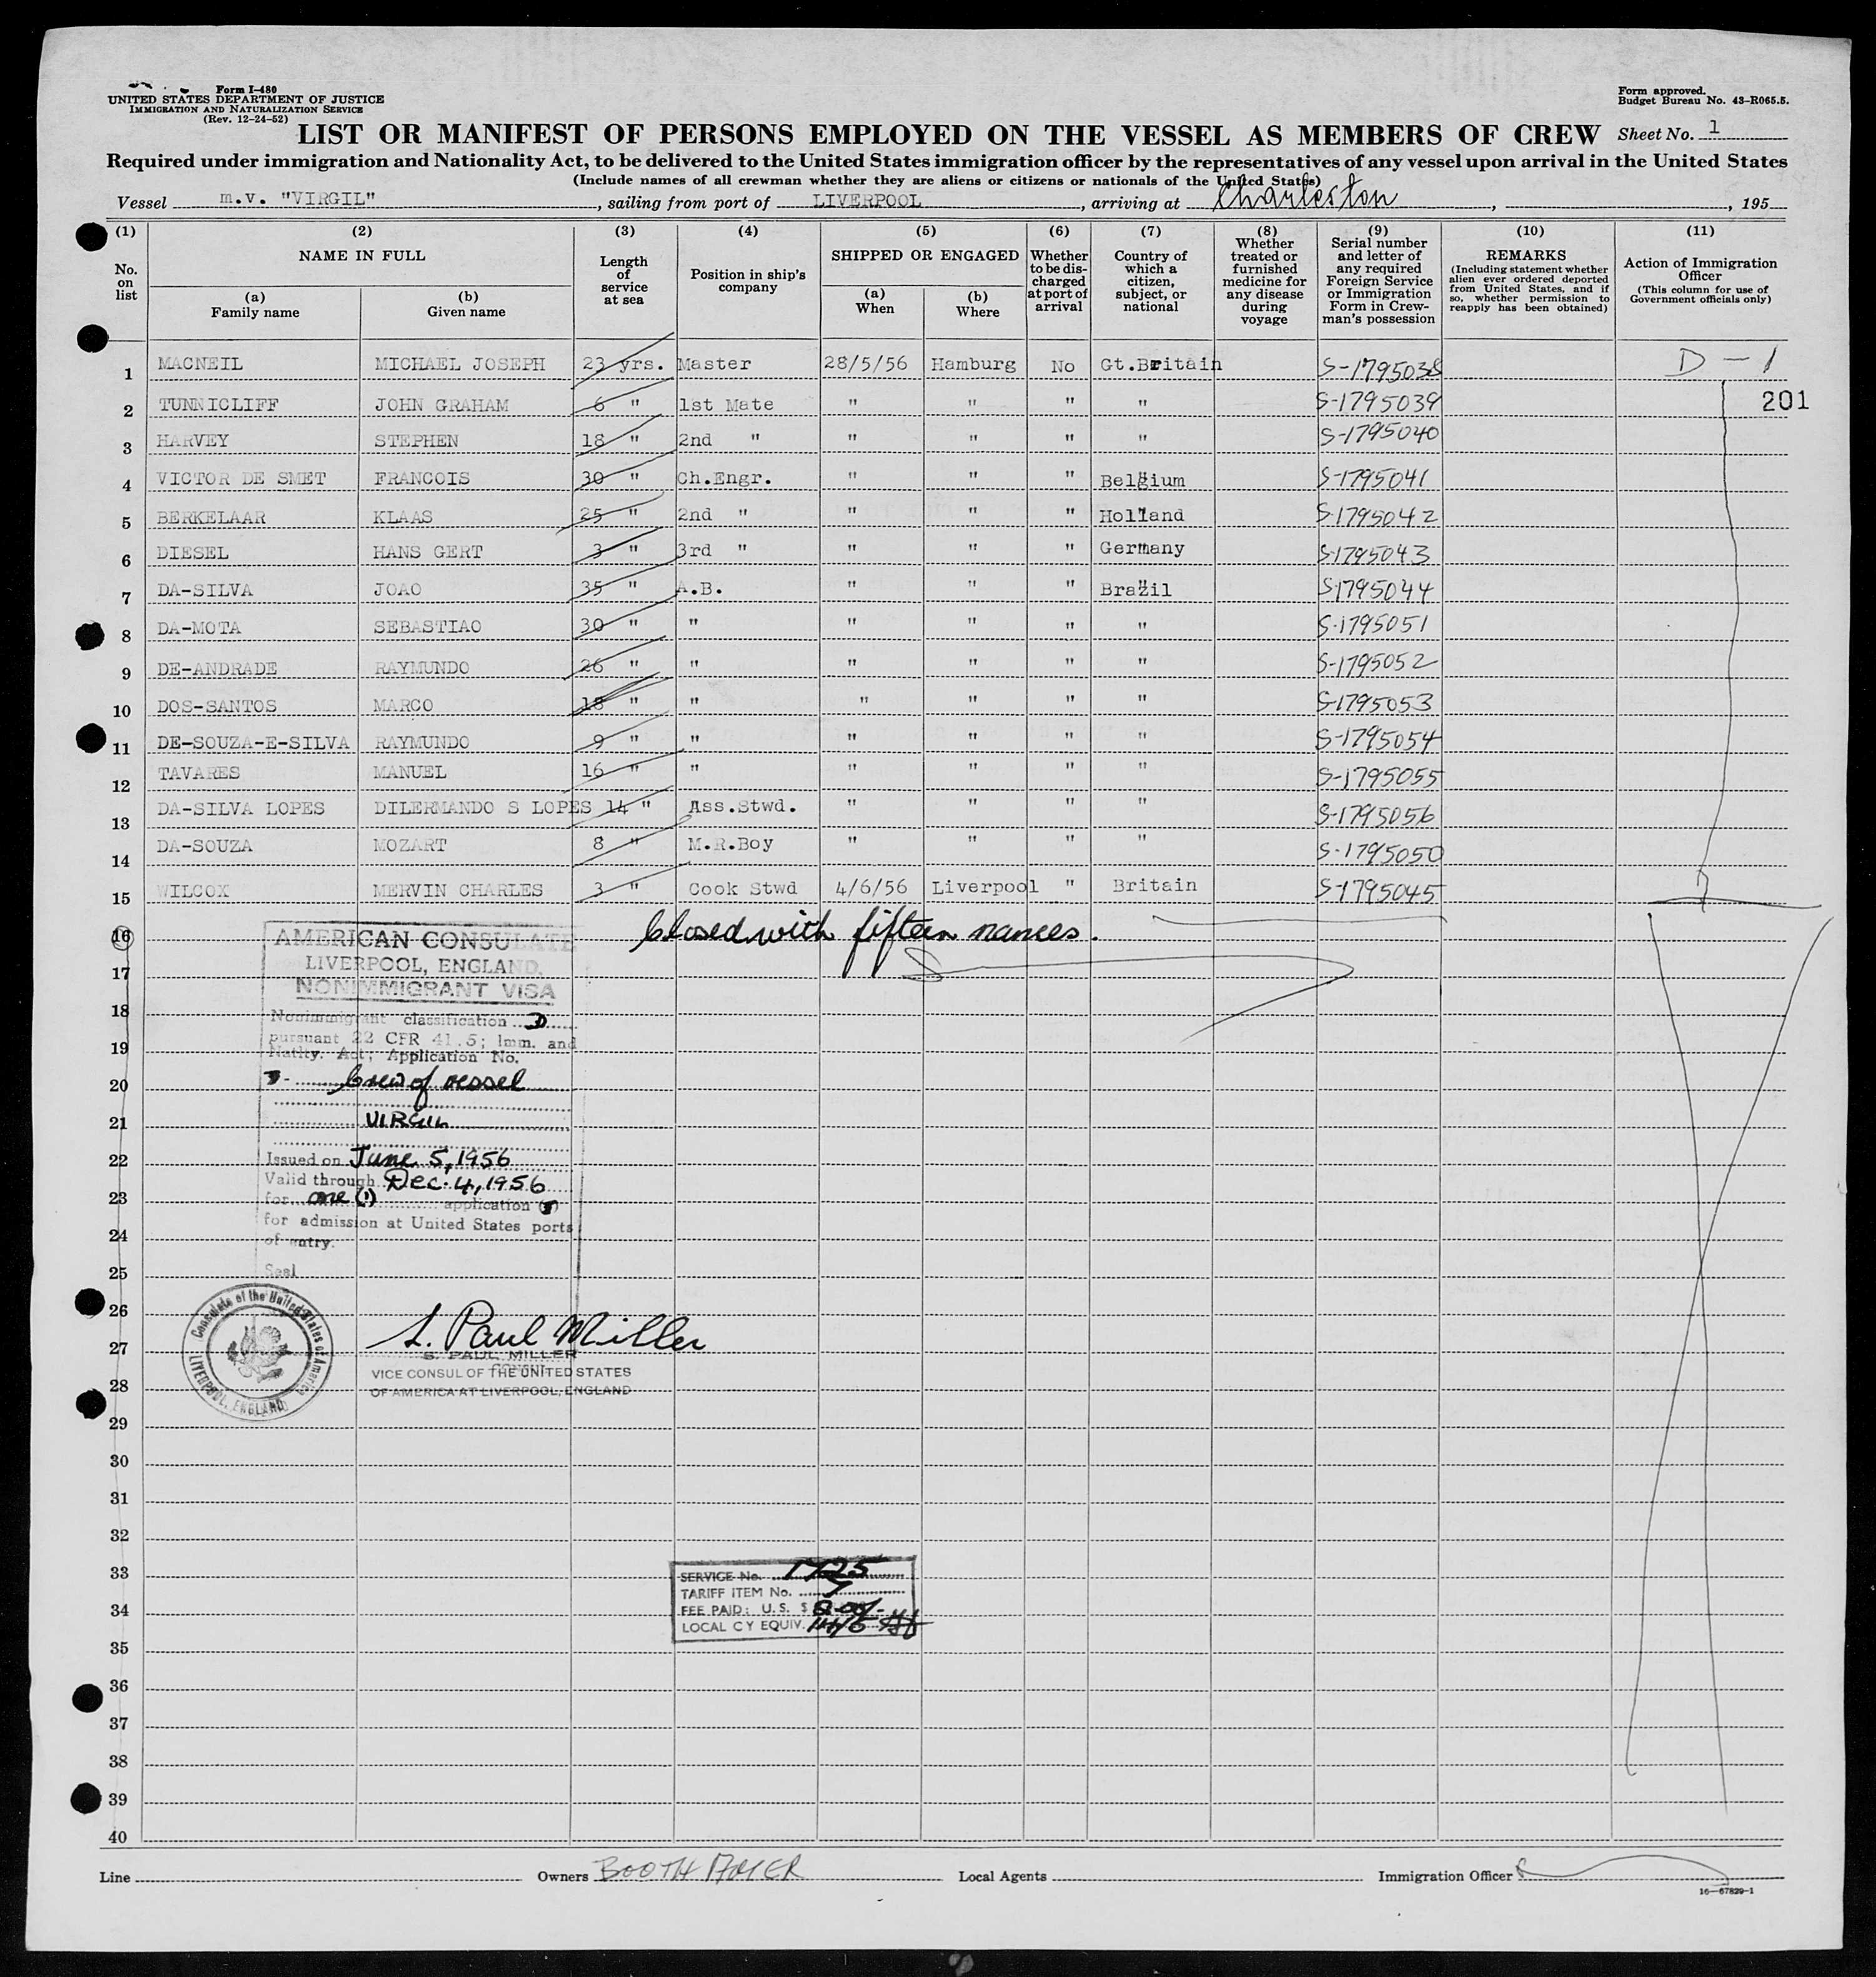 Form I-480
UNITED STATES DEPARTMENT OF JUSTICE
IMMIGRATION AND NATURALIZATION SERVICE
(Rev. 12-24-52)
Form approved.
Budget Bureau No. 43-R065.5.
LIST OR MANIFEST OF PERSONS EMPLOYED ON THE VESSEL AS MEMBERS OF CREW Sheet No. 1
Required under immigration and Nationality Act, to be delivered to the United States immigration officer by the representatives of any vessel upon arrival in the United States
(Include names of all crewman whether they are aliens or citizens or nationals of the United States)
Vessel m.v. "VIRGIL", sailing from port of LIVERPOOL, arriving at Charleston, , 195
(1) No. on list
(2) NAME IN FULL (a) Family name (b) Given name
(3) Length of service at sea
(4) Position in ship's company
(5) SHIPPED OR ENGAGED (a) When (b) Where
(6) Whether to be discharged at port of arrival
(7) Country of which a citizen, subject, or national
(8) Whether treated or furnished medicine for any disease during voyage
(9) Serial number and letter of any required Foreign Service or Immigration Form in Crewman's possession
(10) REMARKS (Including statement whether alien ever ordered deported from United States, and if so, whether permission to reapply has been obtained)
(11) Action of Immigration Officer (This column for use of Government officials only)
1 MACNEIL MICHAEL JOSEPH 23 yrs. Master 28/5/56 Hamburg No Gt.Britain S-1795038 D-1
2 TUNNICLIFF JOHN GRAHAM 6 " 1st Mate " " " " S-1795039 201
3 HARVEY STEPHEN 18 " 2nd " " " " " S-1795040
4 VICTOR DE SMET FRANCOIS 30 " Ch.Engr. " " " Belgium S-1795041
5 BERKELAAR KLAAS 25 " 2nd " " " " Holland S-1795042
6 DIESEL HANS GERT 3 " 3rd " " " " Germany S-1795043
7 DA-SILVA JOAO 35 " A.B. " " " Brazil S1795044
8 DA-MOTA SEBASTIAO 30 " " " " " " S-1795051
9 DE-ANDRADE RAYMUNDO 26 " " " " " " S-1795052
10 DOS-SANTOS MARCO 18 " " " " " " S-1795053
11 DE-SOUZA-E-SILVA RAYMUNDO 9 " " " " " " S-1795054
12 TAVARES MANUEL 16 " " " " " " S-1795055
13 DA-SILVA LOPES DILERMANDO S LOPES 14 " Ass.Stwd. " " " " S-1795056
14 DA-SOUZA MOZART 8 " M.R.Boy " " " " S-1795050
15 WILCOX MERVIN CHARLES 3 " Cook Stwd 4/6/56 Liverpool " Britain S-1795045
16 Closed with fifteen names.
AMERICAN CONSULATE
17 LIVERPOOL, ENGLAND,
NONIMMIGRANT VISA
18 Nonimmigrant classification D
pursuant 22 CFR 41.5; Imm. and
19 Natlty. Act; Application No.
20 Crew of vessel
21 VIRGIL
22 Issued on June 5, 1956
Valid through Dec. 4, 1956
23 for one (1) application
for admission at United States ports
24 of entry.
25 Seal
26
Consulate of the United States of America
LIVERPOOL, ENGLAND
27 S. Paul Miller
S. PAUL MILLER
VICE CONSUL OF THE UNITED STATES
28 OF AMERICA AT LIVERPOOL, ENGLAND
29
30
31
32
33 SERVICE No. 1725
TARIFF ITEM No. 7
34 FEE PAID: U.S. $
LOCAL CY EQUIV.
35
36
37
38
39
40
Line Owners BOOTH Local Agents Immigration Officer
16—67829-1